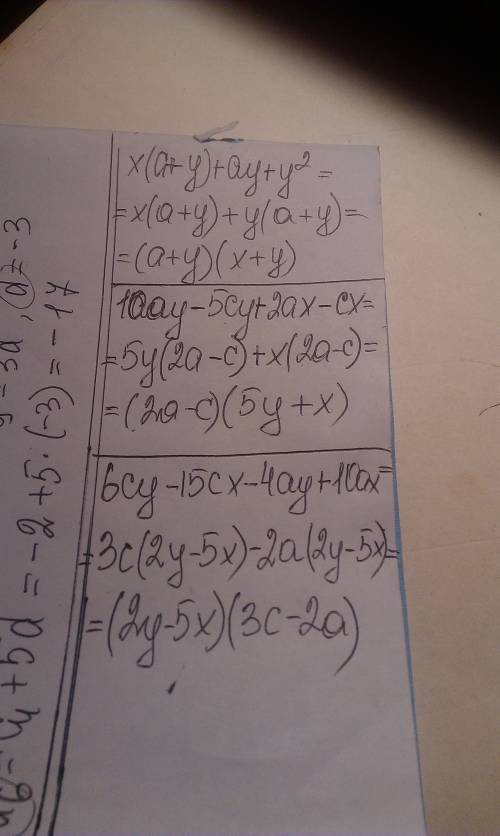 x(a+y)+ay+y²=
=x(a+y)+y(a+y)=
=(a+y)(x+y)
10ay-5cy+2ax-cx=
=5y(2a-c)+x(2a-c)=
=(2a-c)(5y+x)
6cy-15cx-4ay+10ax=
=3c(2y-5x)-2a(2y-5x)=
=(2y-5x)(3c-2a)
=3d, d=-3
+5d=-2+5·(-3)=-17